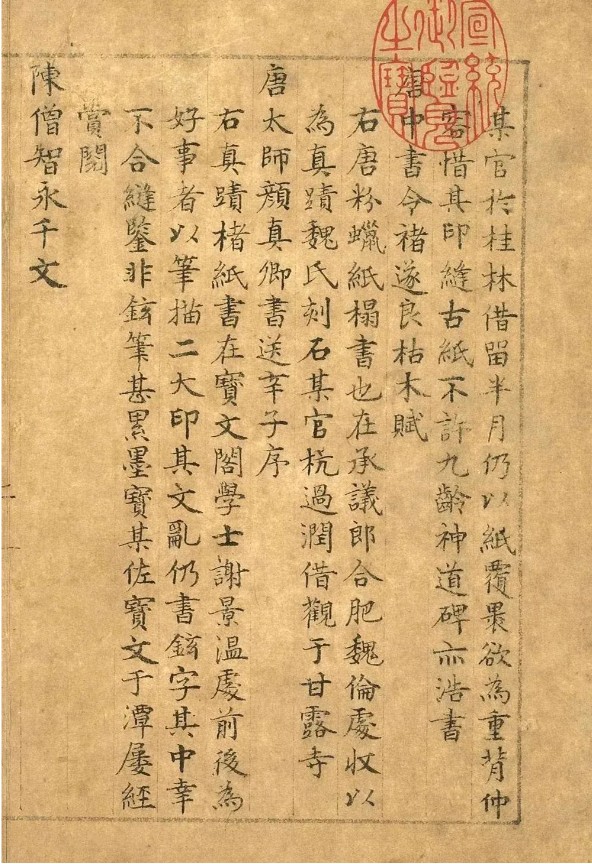 宣統御覽之寶
某官扵桂林借畱半月仍以紙覆裹欲為重背仲
容惜其印縫古紙不許九齡神道碑亦浩書
唐中書令褚遂良枯木賦
右唐粉蠟紙榻書也在承議郎合肥魏倫處收以
為真蹟魏氏刻石某官杭過潤借觀于甘露寺
唐太師顏真卿書送辛子序
右真蹟楮紙書在寶文閣學士謝景溫處前後為
好事者以筆描二大印其文亂仍書鉉字其中幸
不合縫鑒非鉉筆甚累墨寶某佐寶文于潭屢經
賞閱
陳僧智永千文